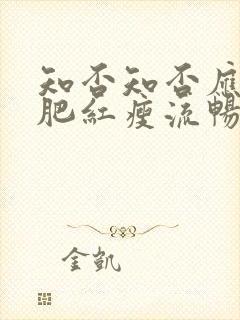 知否知否應
肥紅瘦流暢
金凱